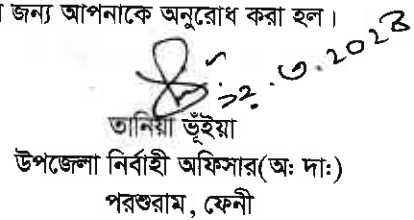 জন্য আপনাকে অনুরোধ করা হল।
১২.৩.২০২৪
তানিয়া ভূঁইয়া
উপজেলা নির্বাহী অফিসার(অ: দা:)
পরশুরাম, ফেনী